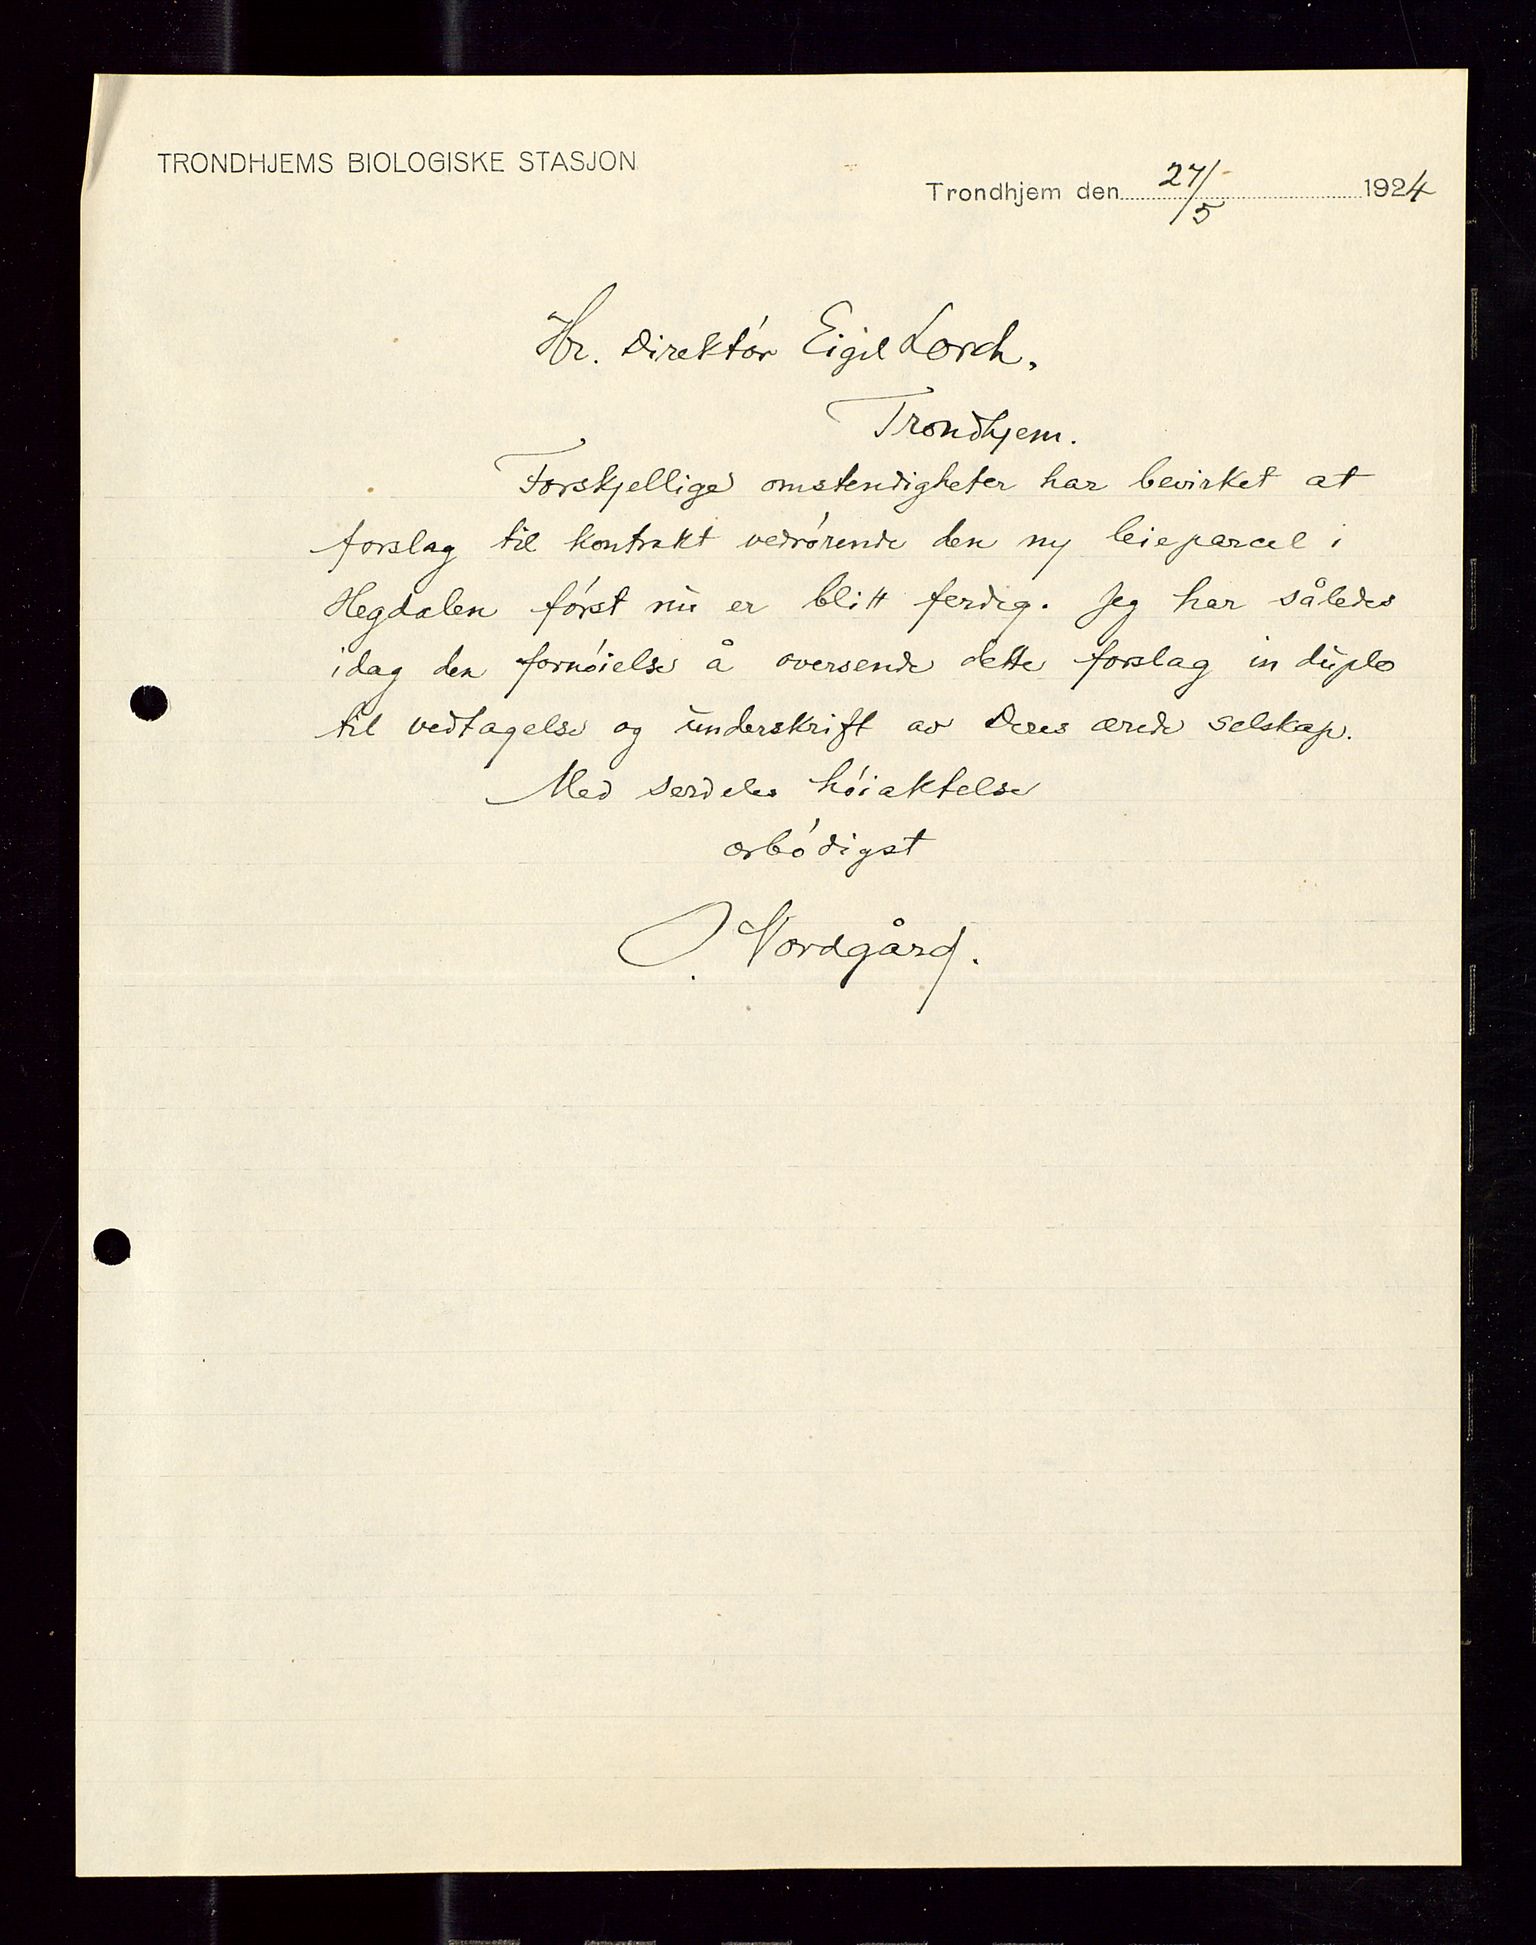 TRONDHJEMS BIOLOGISKE STASJON
Trondhjem den 27/5 1924
Hr. Direktør Eigil Lorch,
Trondhjem.
Forskjellige omstendigheter har bevirket at
forslag til kontrakt vedrørende den ny leieparcel i
Hegdalen først nu er blitt ferdig. Jeg har således
idag den fornøielse å oversende dette forslag in duplo
til vedtagelse og underskrift av Deres ærede selskap.
Med særdeles høiaktelse
ærbødigst
O. Nordgård.